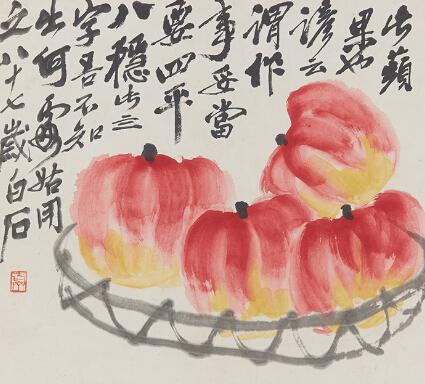 此蘋
果也
諺云
謂作
事妥當
要四平
八穩此三
字吾不知
出何處姑用
之八十七歲白石